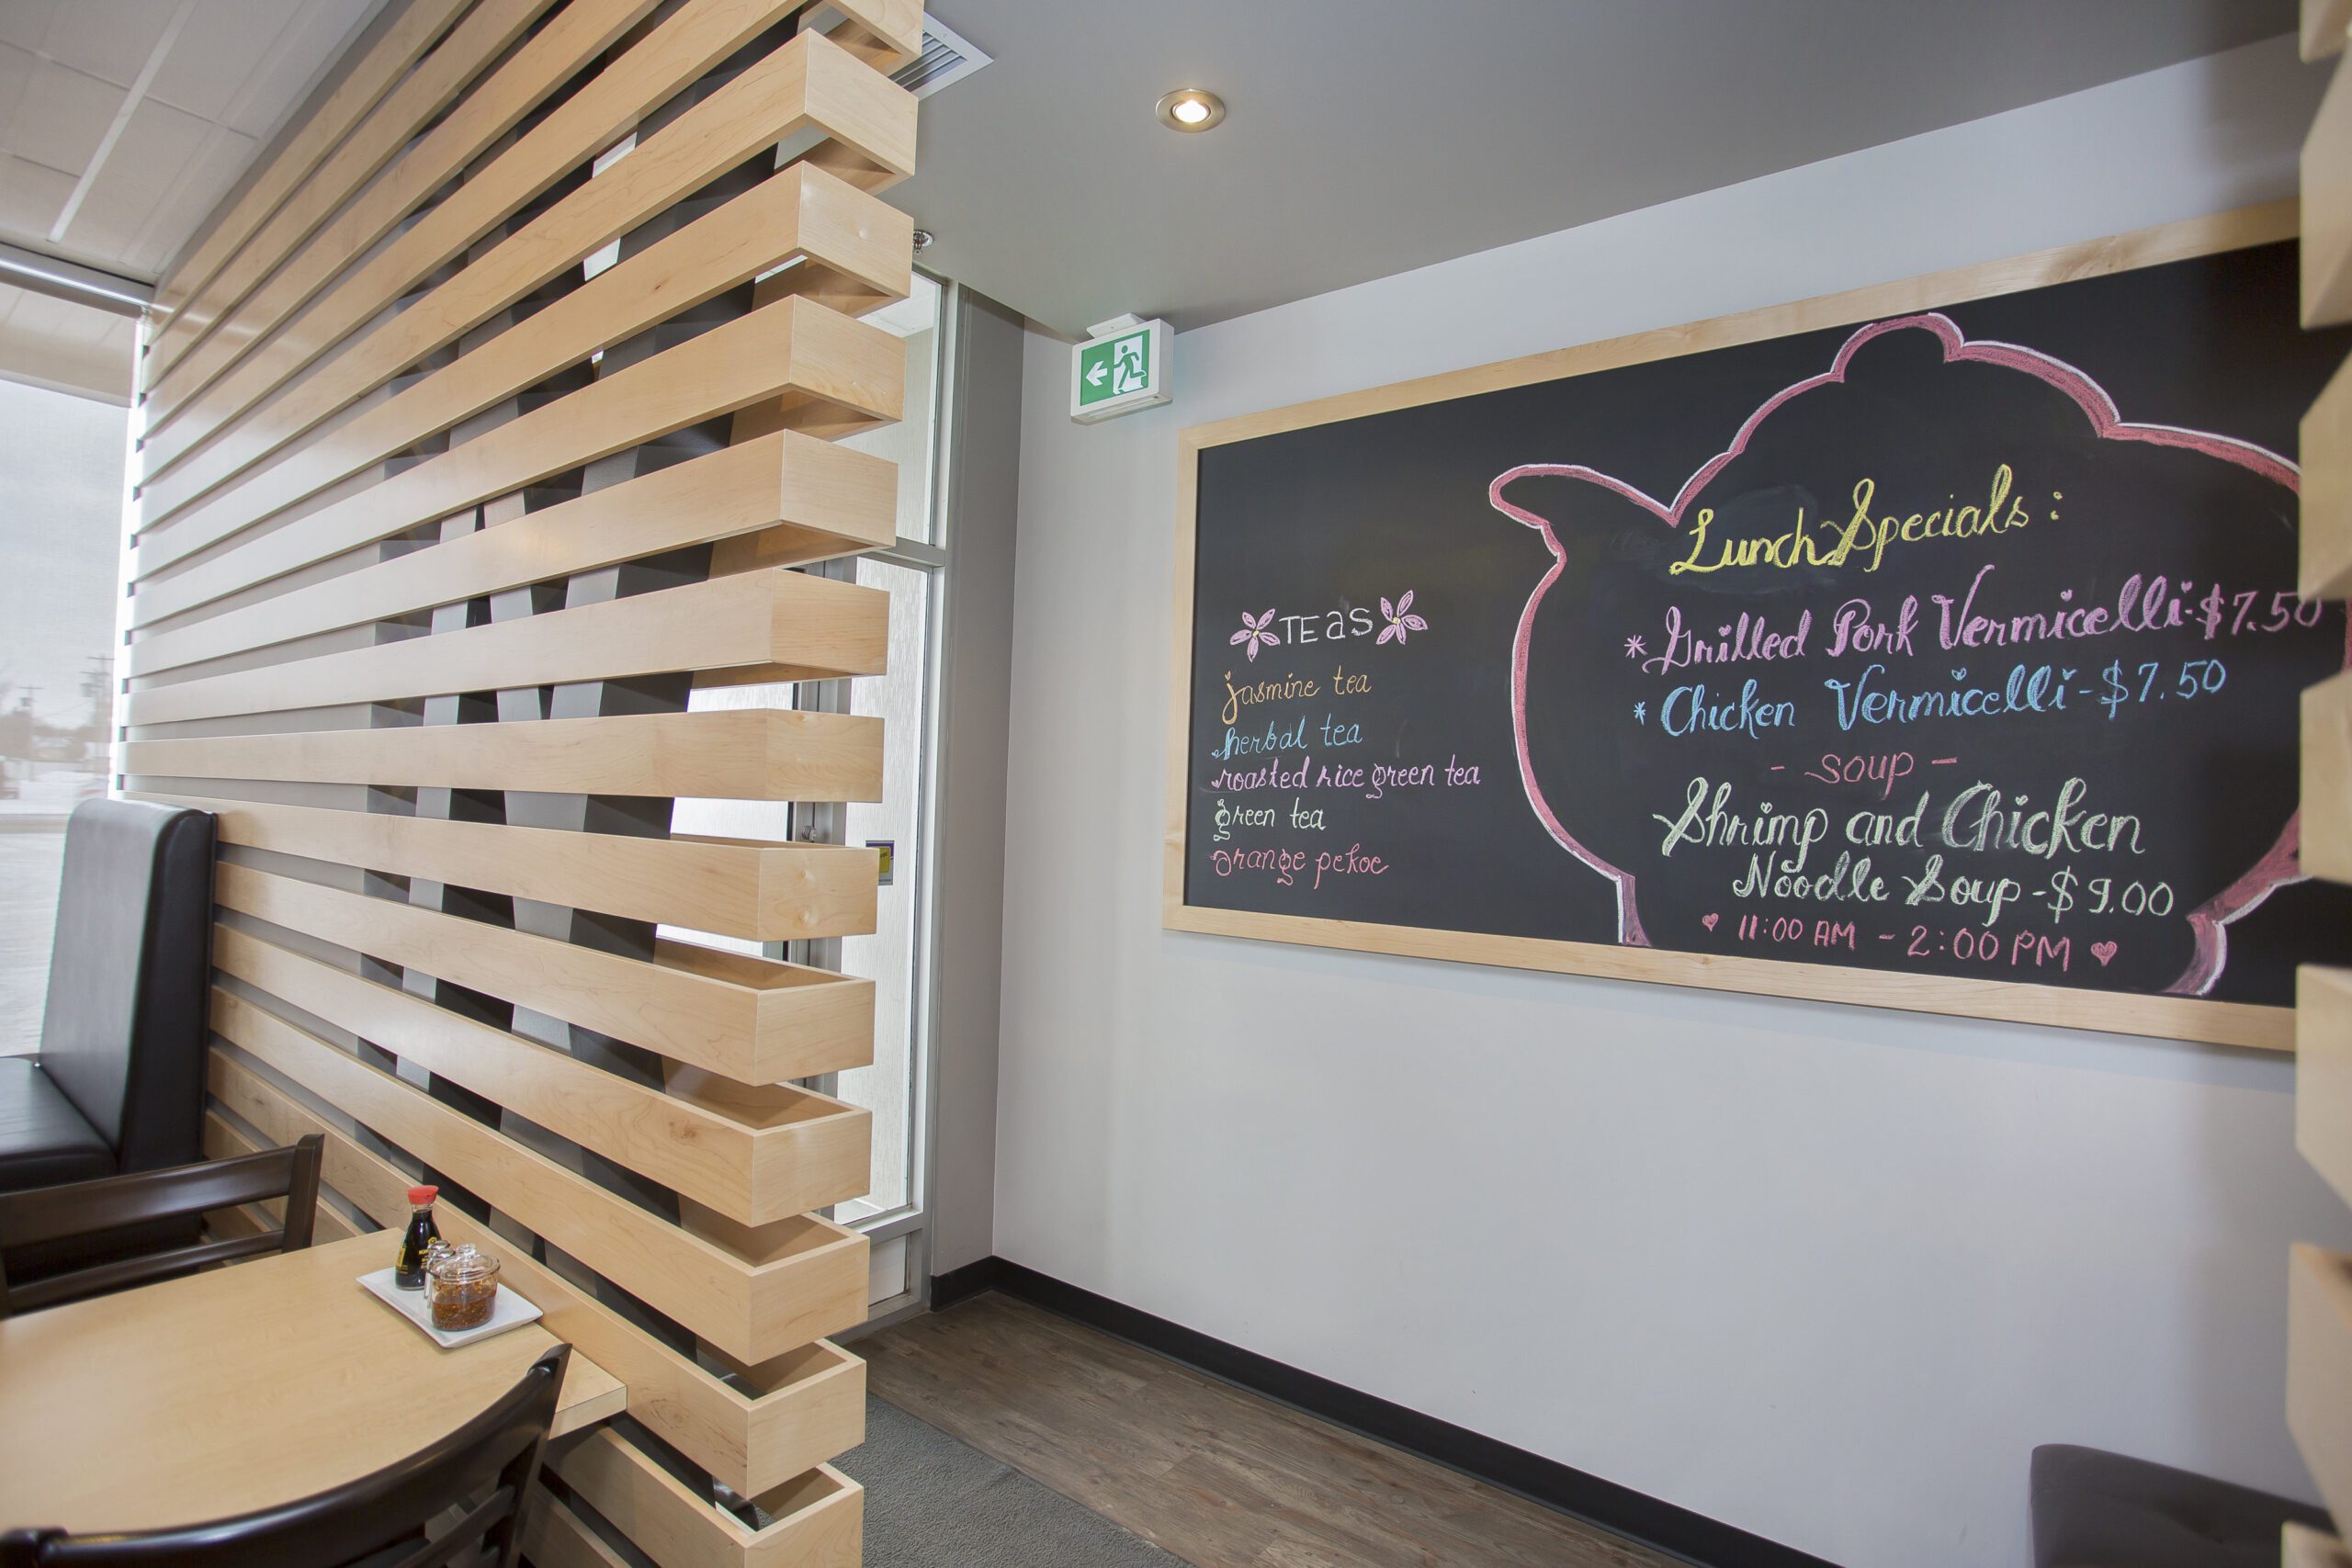 TEaS
jasmine tea
herbal tea
roasted rice green tea
green tea
orange pekoe
Lunch Specials:
* Grilled Pork Vermicelli-$7.50
* Chicken Vermicelli-$7.50
- soup -
Shrimp and Chicken
Noodle Soup-$9.00
♥ 11:00 AM - 2:00 PM ♥